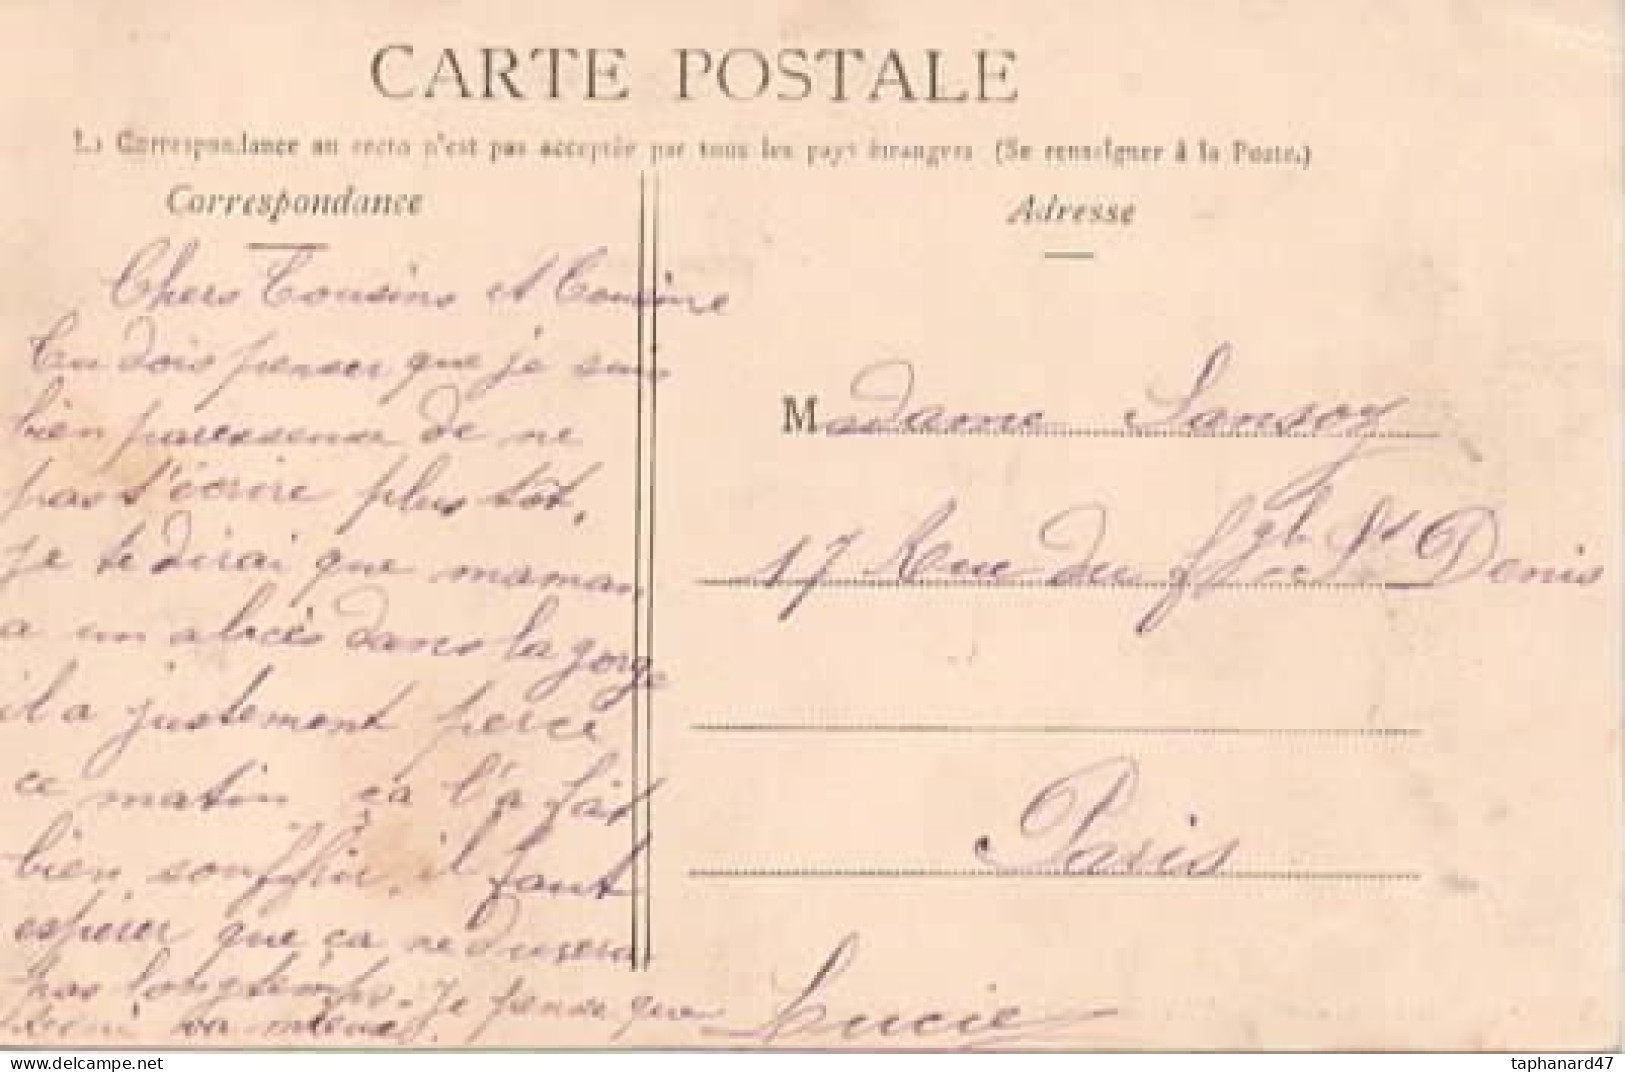 CARTE POSTALE
La Correspondance au recto n'est pas acceptée par tous les pays étrangers (Se renseigner à la Poste.)
Correspondance
Chers Cousins et Cousine
Tu dois penser que je suis
bien paresseuse de ne
pas t'écrire plus tôt.
je te dirai que maman
a un abcès dans la gorge
il a justement percé
ce matin ça l'a fait
bien souffrir, il faut
espérer que ça ne durera
pas longtemps. Je pense que
va mieux.
Lucie
Adresse
Madame Sansoy
17 Rue du Fg St Denis
Paris
delcampe.net
taphanard47